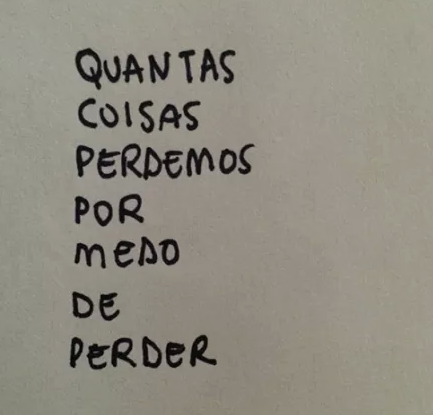 QUANTAS
COISAS
PERDEMOS
POR
MEDO
DE
PERDER